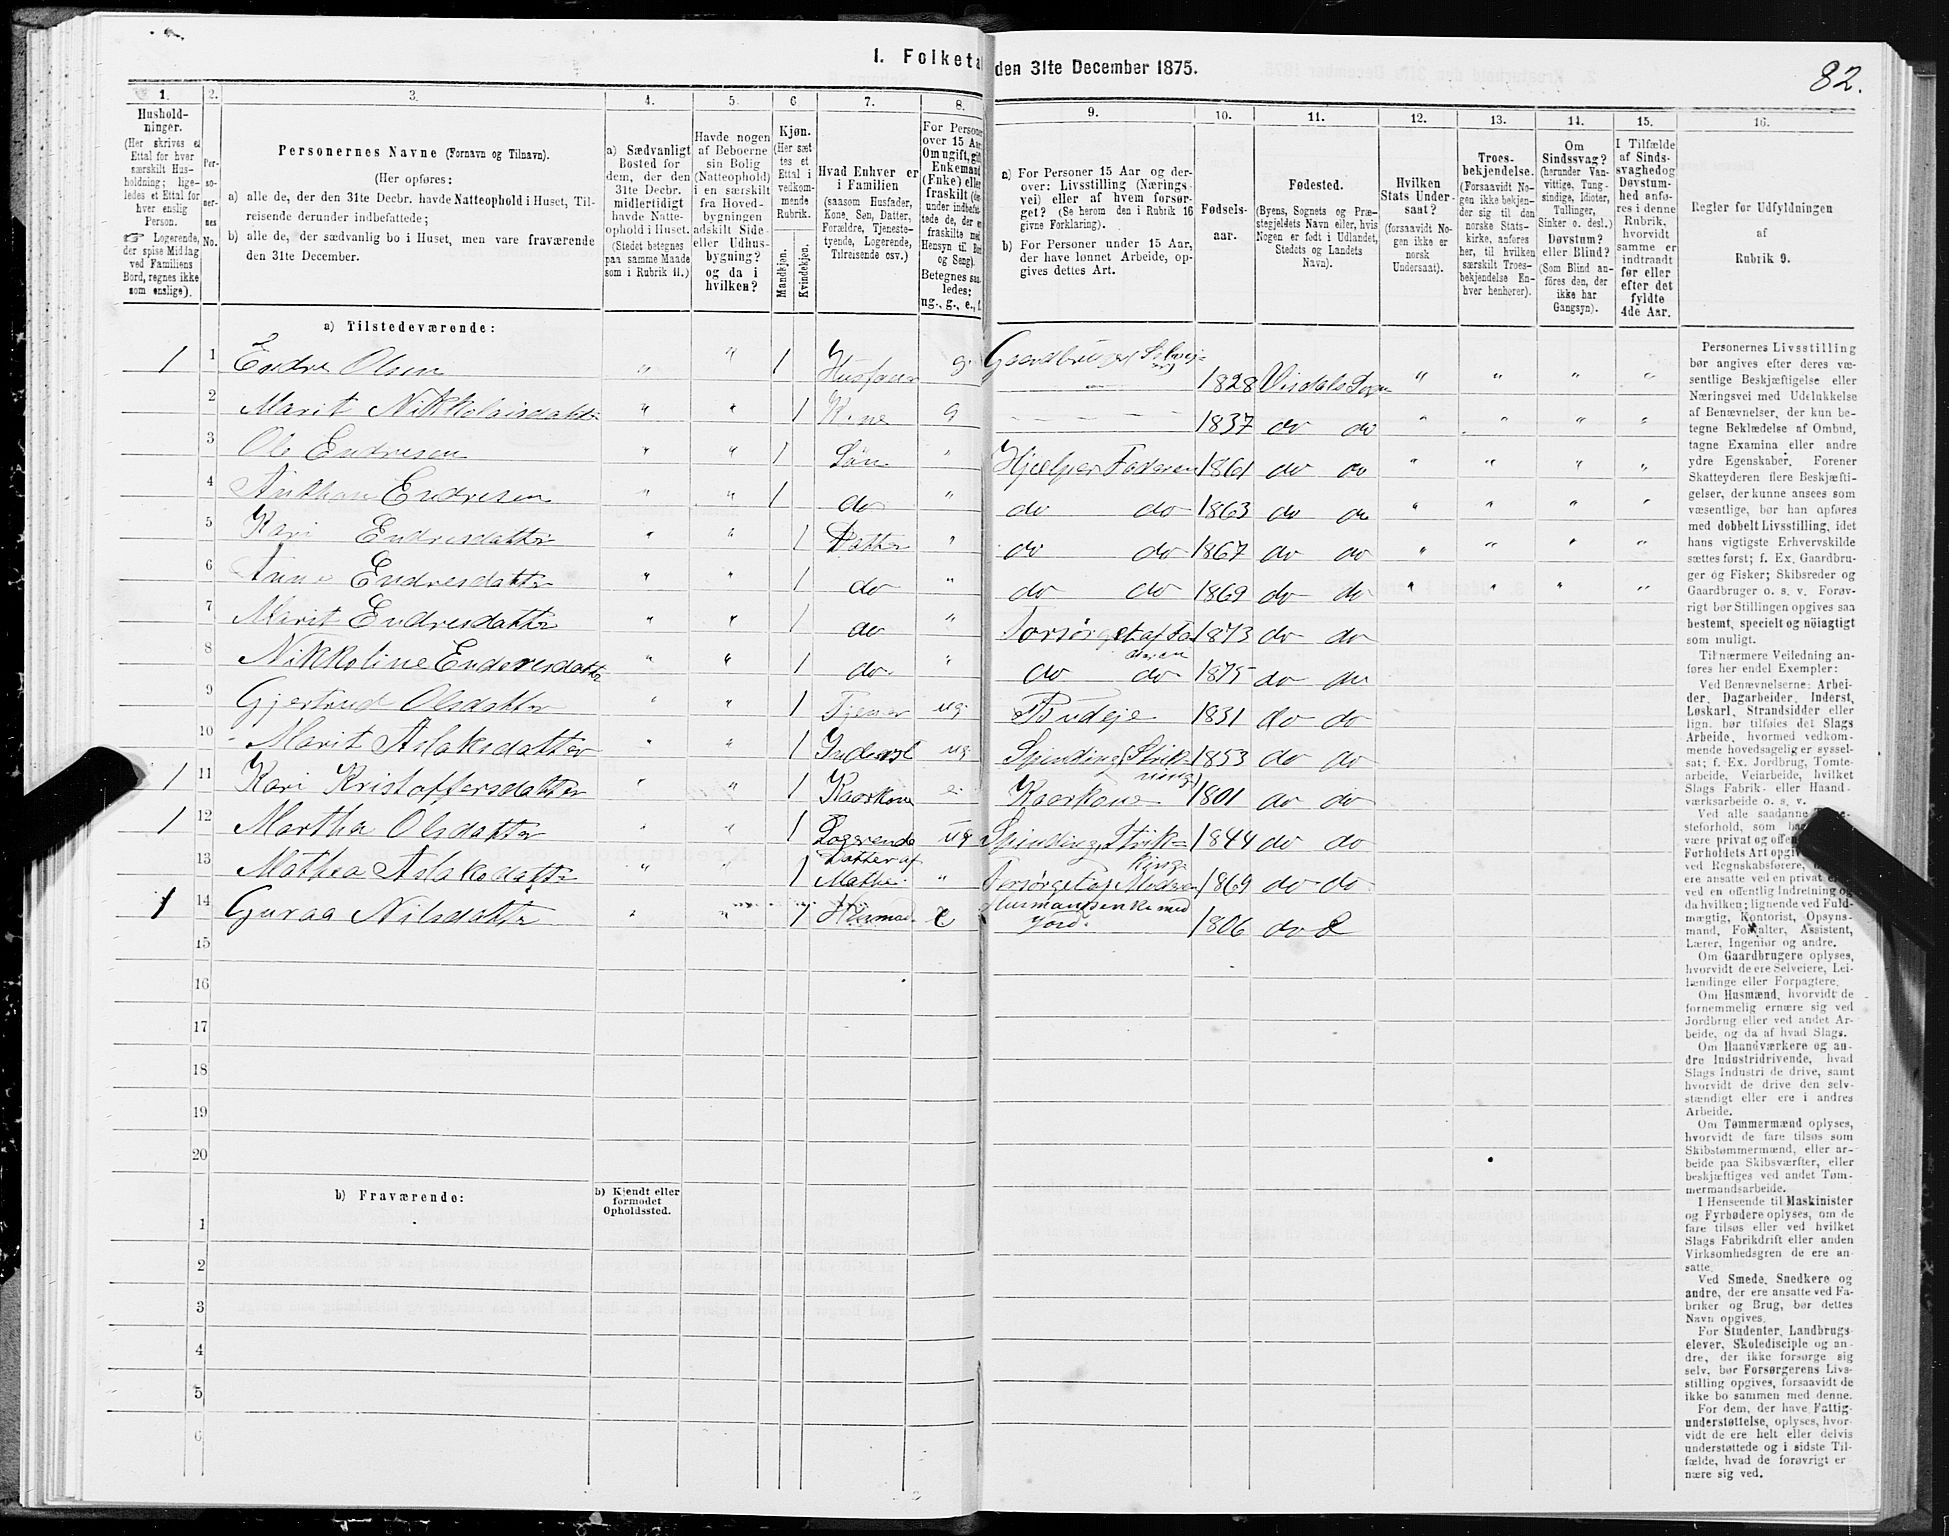 I. Folketa den 31te December 1875.
82.
1. 2. 3. 4. 5. 6 7. 8. 9. 10. 11. 12. 13. 14. 15. 16.
Hushold-
ninger.
(Her skrives et
Ettal for hver
særskilt Hus-
holdning; lige-
ledes et Ettal for
hver enslig
Person.
☞ Logerende,
der spise Middag
ved Familiens
Bord, regnes ikke
som enslige).
Per-
so-
ner-
nes
No.
Personernes Navne (Fornavn og Tilnavn).
(Her opføres:
a) alle de, der den 31te Decbr. havde Natteophold i Huset, Til-
reisende derunder indbefattede;
b) alle de, der sædvanlig bo i Huset, men vare fraværende
den 31te December.
a) Sædvanligt
Bosted for
dem, der den
31te Decbr.
midlertidigt
havde Natte-
ophold i Huset.
(Stedet betegnes
paa samme Maade
som i Rubrik 11.)
Havde nogen
af Beboerne
sin Bolig
(Natteophold)
i en særskilt
fra Hoved-
bygningen
adskilt Side-
eller Udhus-
bygning?
og da i
hvilken?
Kjøn.
(Her sæt
tes et
Ettal i
vedkom-
mende
Rubrik.
Mandkjøn.
Kvindekjøn.
Hvad Enhver er
i Familien
(saasom Husfader,
Kone, Søn, Datter,
Forældre, Tjeneste-
tyende, Logerende,
Tilreisende osv.)
For Personer
over 15 Aar
Om ugift, gift
Enkemand
(Enke) eller
fraskilt
Hensyn til Bord
og Seng).
Betegnes saa-
ledes:
ug., g., e., f.
a) For Personer 15 Aar og der-
over: Livsstilling (Nærings-
vei) eller af hvem forsør-
get? (Se herom den i Rubrik 16
givne Forklaring).
b) For Personer under 15 Aar,
der have lønnet Arbeide, op-
gives dettes Art.
Fødsels-
aar.
Fødested.
(Byens, Sognets og Præ-
stegjeldets Navn eller, hvis
Nogen er født i Udlandet,
Stedets og Landets
Navn).
Hvilken
Stats Under-
saat?
(forsaavidt No-
gen ikke er
norsk
Undersaat).
Troes-
bekjendelse.
(Forsaavidt No-
gen ikke bekjen-
der sig til den
norske Stats-
kirke, anføres
her, til hvilken
særskilt Troes-
bekjendelse En-
hver henhører).
Om
Sindssvag?
(herunder Van-
vittige, Tung-
sindige, Idioter,
Tullinger,
Sinker o. desl.)
Døvstum?
eller Blind?
(Som Blind an-
føres den, der
ikke har
Gangsyn).
I Tilfælde
af Sinds-
svaghed og
Døvstum-
hed anfø-
res i denne
Rubrik.
hvorvidt
samme er
indtraadt
før eller
efter det
fyldte
4de Aar.
Regler for Udfyldningen
af
Rubrik 9.
a) Tilstedeværende:
1 1 Endre Olsen " " 1 Husfader g Gaardbruger Selvej- 1828 Virdals Sogn " " " "
2 Marit Nikkolaisdatter " " 1 Kone g 1837 do do " " " "
3 Ole Endresen " " 1 Søn " Hjælper Faderen 1861 do do " " " "
4 Endresen " " 1 do " do do 1863 do do " " " "
5 Kari Endresdatter " " 1 Datter " do do 1867 do do " " " "
6 Endresdatter " " 1 do " do do 1869 do do " " " "
7 Marit Endresdatter " " 1 do " Forsørget af Fa- 1873 do do
deren
8 Nikkoline Enderesdatter " " 1 do " do do 1875 do do
9 Gjertrud Olsdatter " " 1 Tjener ug Budeje 1831 do do
10 Marit Aslaksdatter " " 1 Inderst ug Spinding Strik- 1853 do do
ning
1 11 Kari Kristoffersdatter " " 1 Kaarkone e Kaarkone 1801 do do
1 12 Martha Olsdatter " " 1 Logerende ug Spinding, Strik- 1844 do do
king
13 Mathea Aslaksdatter " " 1 Datter af " Forsørget af Moderen 1869 do do
Mathe
1 14 Guraa Nilsdatter " " 1 e Husmandsenke med 1806 do
Jord.
15
16
17
18
19
20
b) Fraværende:
b) Kjendt eller
formodet
Opholdssted.
1
2
3
4
5
6
Personernes Livsstilling
bør angives efter deres væ-
sentlige Beskjæftigelse eller
Næringsvei med Udelukkelse
af Benævnelser, der kun be-
tegne Beklædelse af Ombud,
tagne Examina eller andre
ydre Egenskaber. Forener
Skatteyderen flere Beskjæfti-
gelser, der kunne ansees som
væsentlige, bør han opføres
med dobbelt Livsstilling, idet
hans vigtigste Erhvervskilde
sættes først; f. Ex. Gaardbru-
ger og Fisker; Skibsreder og
Gaardbruger o. s. v. Forøv-
rigt bør Stillingen opgives saa
bestemt, specielt og nöiagtigt
som muligt.
Til nærmere Veiledning an-
føres her endel Exempler:
Ved Benævnelserne: Arbei-
der, Dagarbeider, Inderst,
Løskarl, Strandsidder eller
lign. bør tilføies det Slags
Arbeide, hvormed vedkom-
mende hovedsagelig er syssel-
sat; f. Ex. Jordbrug, Tomte-
arbeide, Veiarbeide, hvilket
Slags Fabrik- eller Haand-
værksarbeide o. s. v.
Ved alle saadanne
steforhold, som
være privat og
Forholdets Art
ved Regnskabsførere,
ere ansatte ved en privat
ved en offentlig Indretning og
da hvilken; lignende ved Fuld-
mægtig, Kontorist, Opsyns-
mand, Forvalter, Assistent,
Lærer, Ingeniør og andre.
Om Gaardbrugere oplyses,
hvorvidt de ere Selveiere, Lei-
lændinge eller Forpagtere.
Om Husmænd, hvorvidt de
fornemmelig ernære sig ved
Jordbrug eller ved andet Ar-
beide, og da af hvad Slags.
Om Haandværkere og an-
dre Industridrivende, hvad
Slags Industri de drive, samt
hvorvidt de drive den selv-
stændigt eller ere i andres
Arbeide.
Om Tømmermænd oplyses,
hvorvidt de fare tilsøs som
Skibstømmermænd, eller ar-
beide paa Skibsværfter, eller
beskjæftiges ved andet Tøm-
mermandsarbeide.
I Henseende til Maskinister
og Fyrbødere oplyses, om de
fare tilsøs eller ved hvilket
Slags Fabrikdrift eller anden
Virksomhedsgren de ere an-
satte.
Ved Smede, Snedkere og
andre, der ere ansatte ved Fa-
briker og Brug, bør dettes
Navn opgives.
For Studenter, Landbrugs-
elever, Skoledisciple og an-
dre, der ikke forsørge sig
selv, bør Forsørgerens Livs-
stilling opgives, forsaavidt de
ikke bo sammen med denne.
For dem, der have Fattig-
understøttelse, oplyses, hvor-
vidt de ere helt eller delvis
understøttede og i sidste Til-
fælde, hvad de forøvrigt er
nære sig ved.